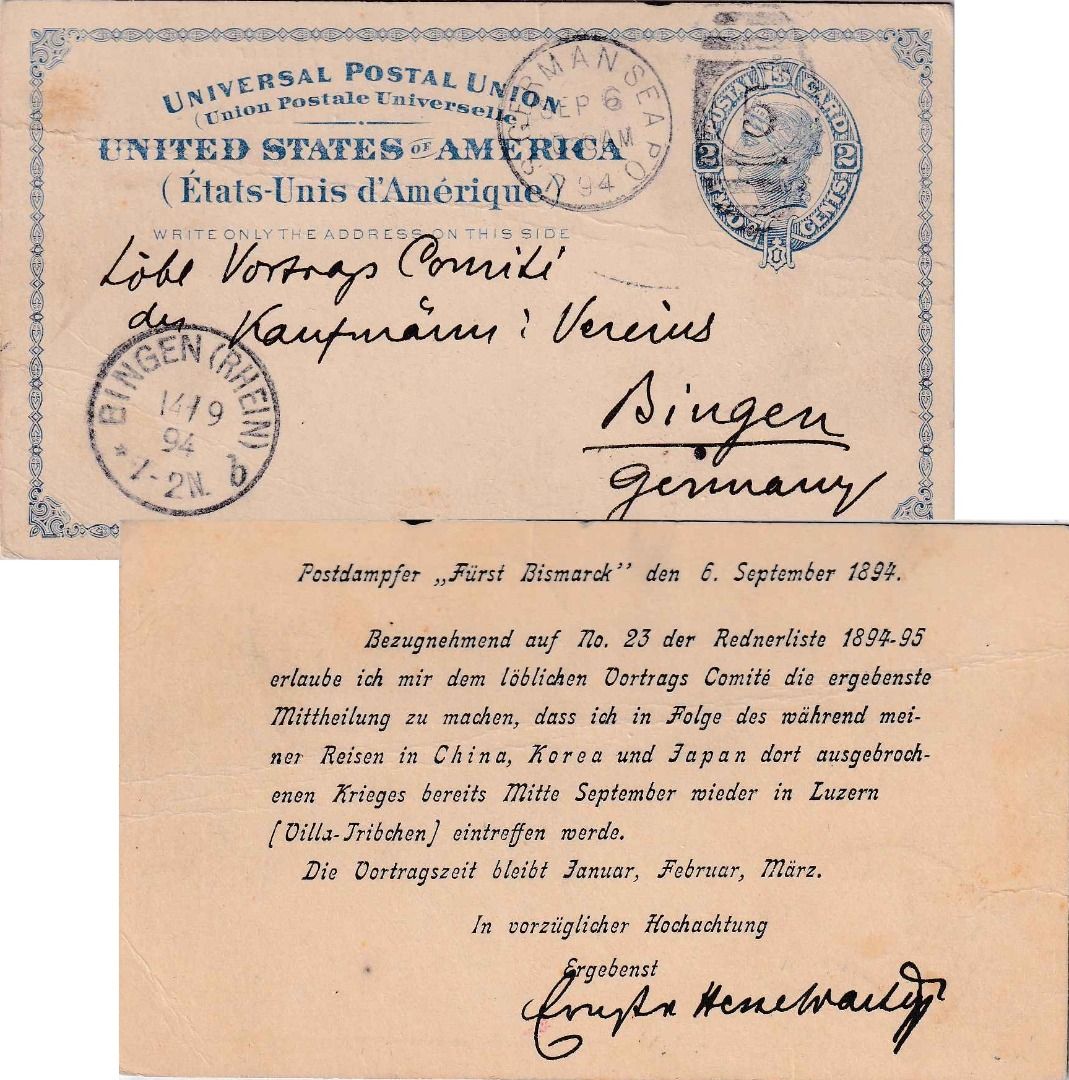 UNIVERSAL POSTAL UNION
(Union Postale Universelle)
UNITED STATES OF AMERICA
(États-Unis d'Amérique)
WRITE ONLY THE ADDRESS ON THIS SIDE
U.S. GERMAN SEA PO
SEP 6
AM
94
5
POSTAL CARD
2 2
TWO CENTS
Löbl Vortrags Comité
des Kaufmänn: Vereins
Bingen
Germany
BINGEN (RHEIN)
14/9
94
* 1-2N. b
Postdampfer „Fürst Bismarck" den 6. September 1894.
Bezugnehmend auf No. 23 der Rednerliste 1894-95
erlaube ich mir dem löblichen Vortrags Comité die ergebenste
Mittheilung zu machen, dass ich in Folge des während mei-
ner Reisen in China, Korea und Japan dort ausgebroch-
enen Krieges bereits Mitte September wieder in Luzern
[Villa-Tribchen] eintreffen werde.
Die Vortragszeit bleibt Januar, Februar, März.
In vorzüglicher Hochachtung
Ergebenst
Ernst v Hesse Wartegg